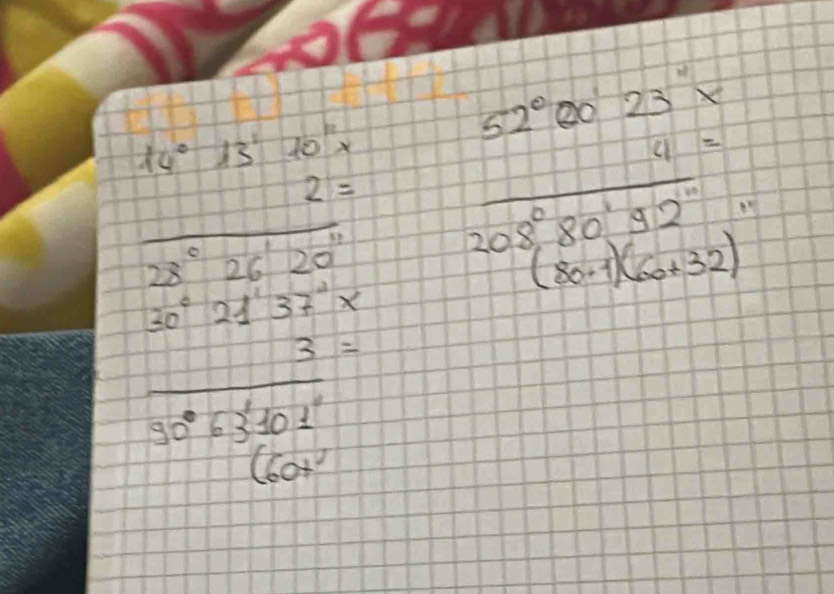 112
14° 13' 10" x
2 =
28° 26' 20"
30° 21' 37" x
3 =
90° 63' 101"
(60+
52° 20' 23" x
4 =
208° 80' 92"
(80+1)(60+32)"